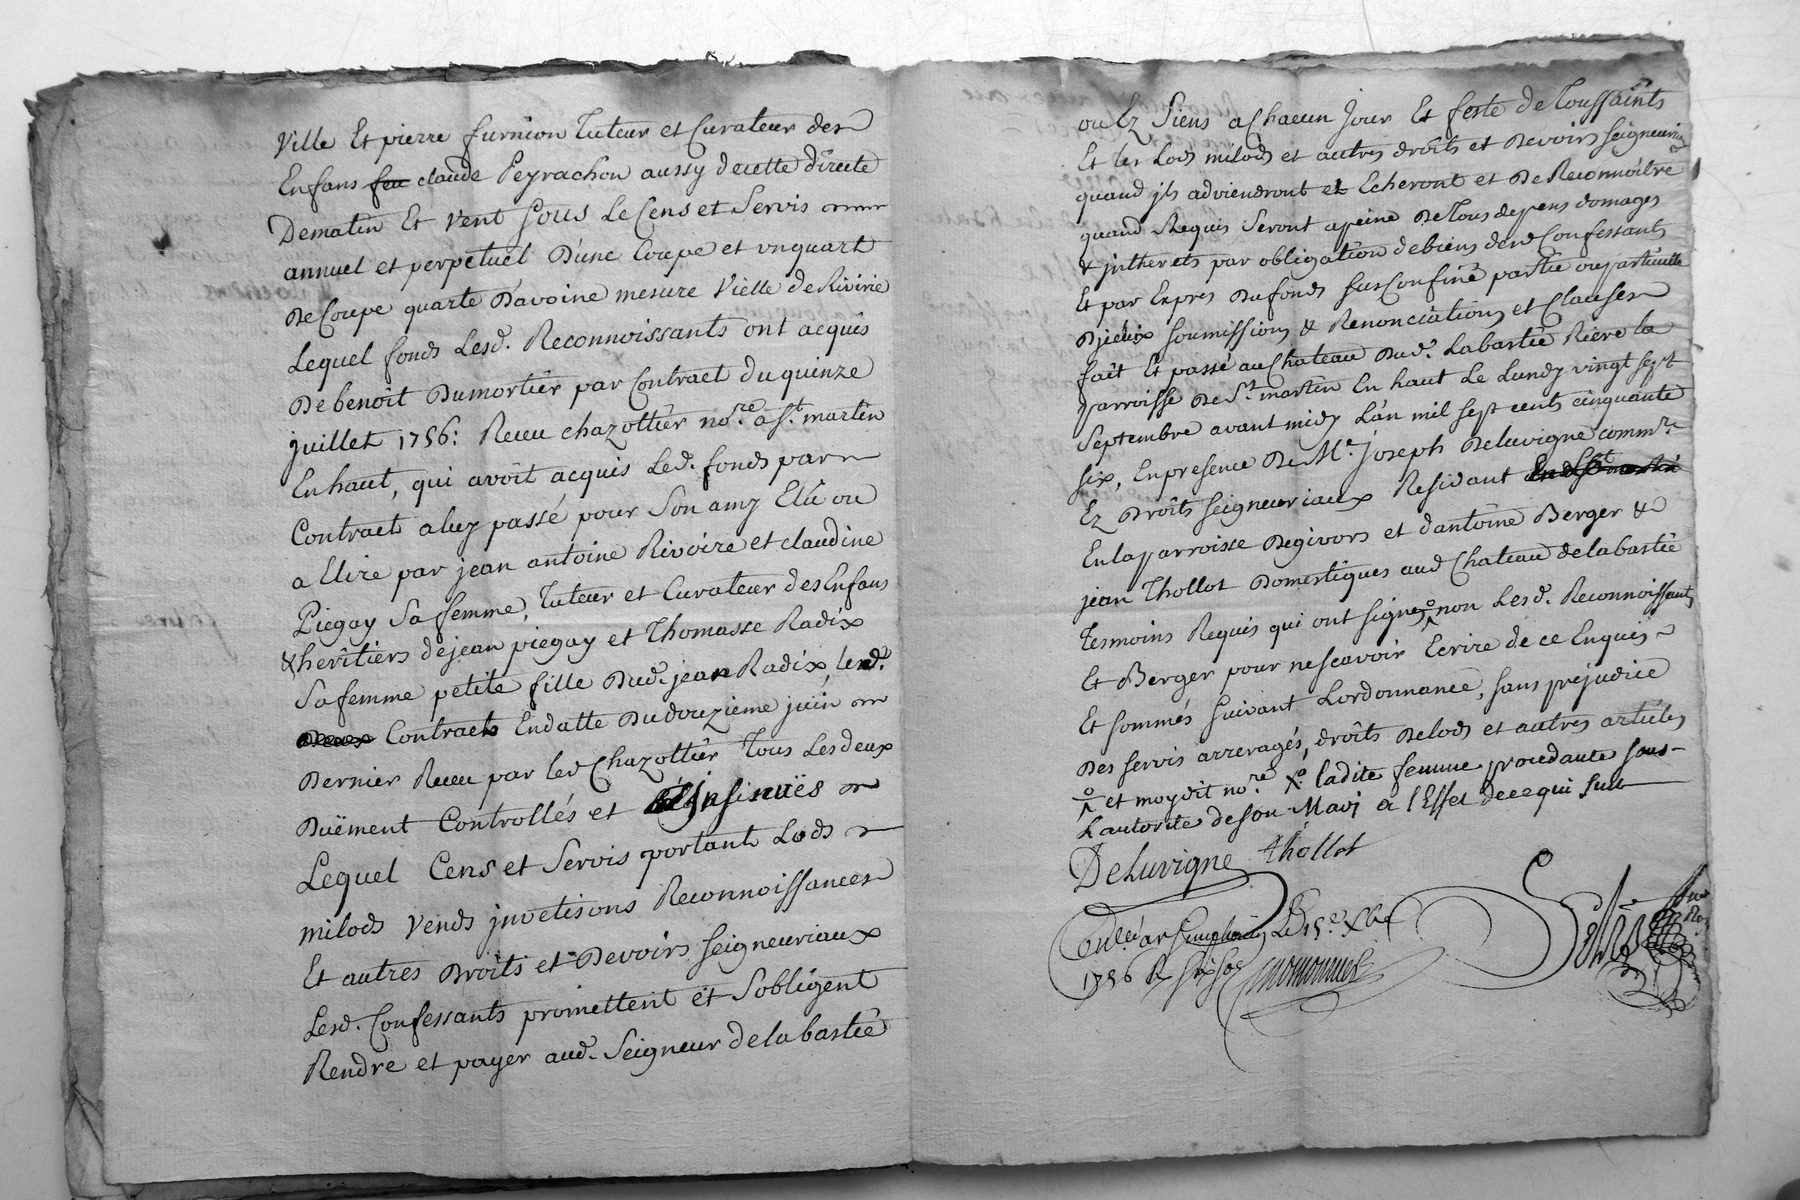 Ville Et pierre furnion Tuteur et Curateur des
Enfans feu claude Peyrachon aussy de cette directe
De matin Et Vent Sous Le Cens et Servis
annuel et perpetuel D'une Coupe et un quart
De Coupe quarte D'avoine mesure Vielle de Rivirie
Lequel fonds Lesd. Reconnoissants ont acquis
De benoit Dumortier par Contract du quinze
juillet 1756: Reçu chazottier no.re a S.t martin
En haut, qui avoit acquis Led. fonds par
Contract a luy passé pour Son amy Elû ou
a Elire par jean antoine Rivoire et claudine
Piegay Sa femme, Tuteur et Curateur des Enfans
& heritiers de jean piegay et Thomasse Radix
Sa femme petite fille Dud. jean Radix, lesd.
Deux Contracts En datte Du douzieme juin
Dernier Reçu par led Chazottier Tous Les deux
Duëment Controllés et jnsinuës
Lequel Cens et Servis portant Lods
milods Vends jnvetisons Reconnoissances
Et autres Droits et Devoirs seigneuriaux
Lesd. Confessants promettent et Sobligent
Rendre et payer aud. Seigneur de la bastie
ou Ez Siens a Chacun Jour Et feste de Toussaints
Et les Lods milods et autres droits et Devoirs seigneuriaux
quand jls adviendront et Echeront et De Reconnoitre
quand Requis Seront a peine De Tous depens domages
& jntherets par obligation de biens desd Confessants
Et par Exprés Du fonds sus Confiné partie ou parcuelle
Djieux soumissions & Renonciations et Clauses
fait Et passé au Chateau Dud. Labastie Riere la
parroisse De S.t martin En haut Le Lundy vingt sept
Septembre avant midy L'an mil sept cents cinquante
six, En presence De M.e Joseph Deluvigne comm.re
Ez Droits seigneuriaux Residant En d St martin
En la parroisse De givors et d'antoine Berger &
jean Thollot Domestiques aud Chateau de la bastie
Tesmoins Requis qui ont signes non Lesd. Reconnoissants
Et Berger pour ne scavoir Ecrire de ce Enquis
Et sommés suivant Lordonnance, sans prejudice
Des servis arreragés, droits De lods et autres articles
et moydit no.re X.o ladite femme procedante sous
L'autorité de son Mary a l'Effet de ce qui suit
Deluvigne Thollot
Le 15.e Xbre
1756 R six sols